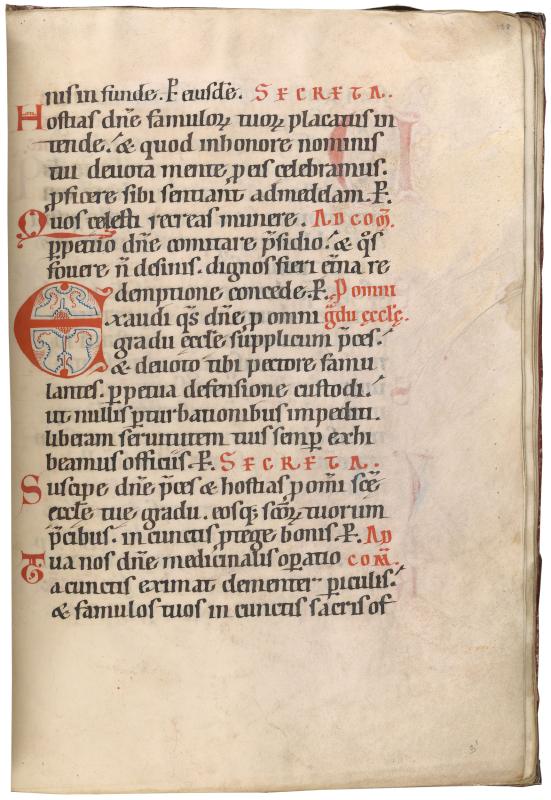 nis in funde. P eiusdē. SECRETA.
Hostias dn̄e famuloꝝ tuoꝝ placatus in
tende. & quod in honore nominis
tui deuota mente ꝓ eis celebramus.
ꝓficere sibi sentiant ad medelam. P.
Quos celesti recreas munere. AD COM̄.
ꝑpetuo dn̄e comitare p̄sidio. & q̄s
fouere n̄ desinis. dignos fieri et̄na re
demptione concede. P. P omni
Exaudi q̄s dn̄e ꝓ omni g̃du ęcclę̄.
gradu eccl̄e supplicum p̄ces.
& deuoto tibi pectore famu
lantes. ꝑpetua defensione custodi.
ut nullis ꝑturbationibus impediti.
liberam seruitutem tuis semꝑ exhi
beamus officiis. P. SECRETA.
Suscipe dn̄e p̄ces & hostias ꝓ om̄i scē
eccl̄e tue gradu. eosq; scōꝝ tuorum
p̄cibus. in cunctis ꝓtege bonis. P. AD
Tua nos dn̄e medicinalis oꝑatio COM̄.
a cunctis eximat clementer ꝑiculis.
& famulos tuos in cunctis sacris of